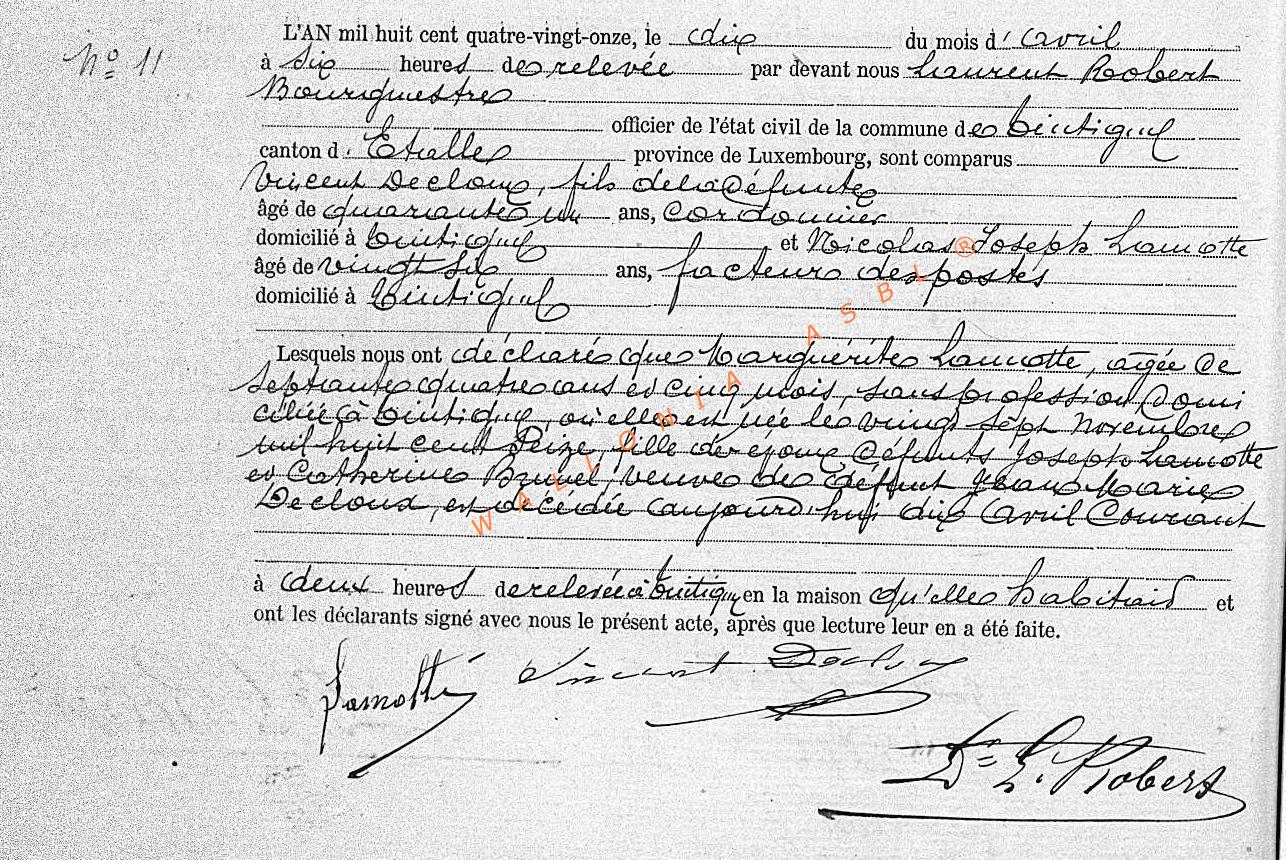 N° 11
L'AN mil huit cent quatre-vingt-onze, le dix du mois d'avril
à six heures de relevée par devant nous Laurent Robert
Bourgmestre
officier de l'état civil de la commune de Tintigny
canton d'Etalle province de Luxembourg, sont comparus
Vincent Decloux, fils de la défunte
âgé de quarante un ans, cordonnier
domicilié à Tintigny et Nicolas Joseph Lamotte
âgé de vingt six ans, facteur des postes
domicilié à Tintigny
Lesquels nous ont déclaré que Marguerite Lamotte, agée de
septante quatre ans et cinq mois, sans profession domi
ciliée à Tintigny, où elle est née le vingt sept Novembre
mil huit cent seize, fille des époux défunts Joseph Lamotte
et Catherine Brunel, veuve de défunt Jean Marie
Decloux, est décédée aujourd'hui dix Avril courant
à deux heures de relevée à Tintigny en la maison qu'elle habitait et
ont les déclarants signé avec nous le présent acte, après que lecture leur en a été faite.
Lamotte Vincent Decloux
Dr L. Robert
WALLONIA ASBL ®